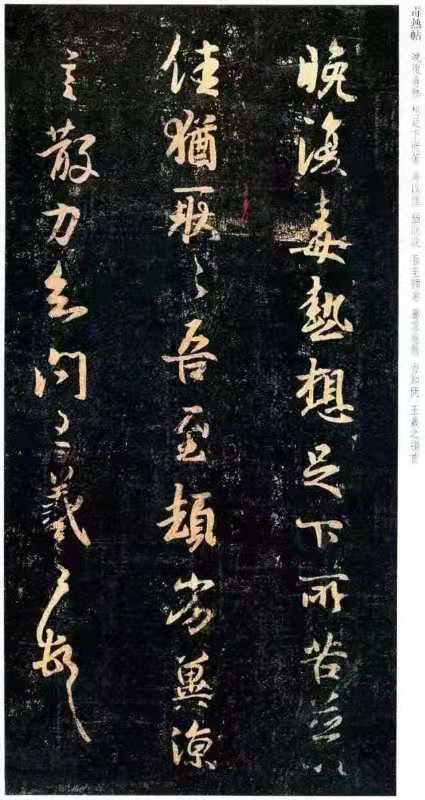 毒熱帖 晚復毒熱 想足下所苦 並以佳 猶耿耿 吾至頓劣 冀涼言散 力知問 王羲之頓首
晚復毒熱想足下所苦並以
佳猶耿〻吾至頓劣冀涼
言散力知問王羲之頓首